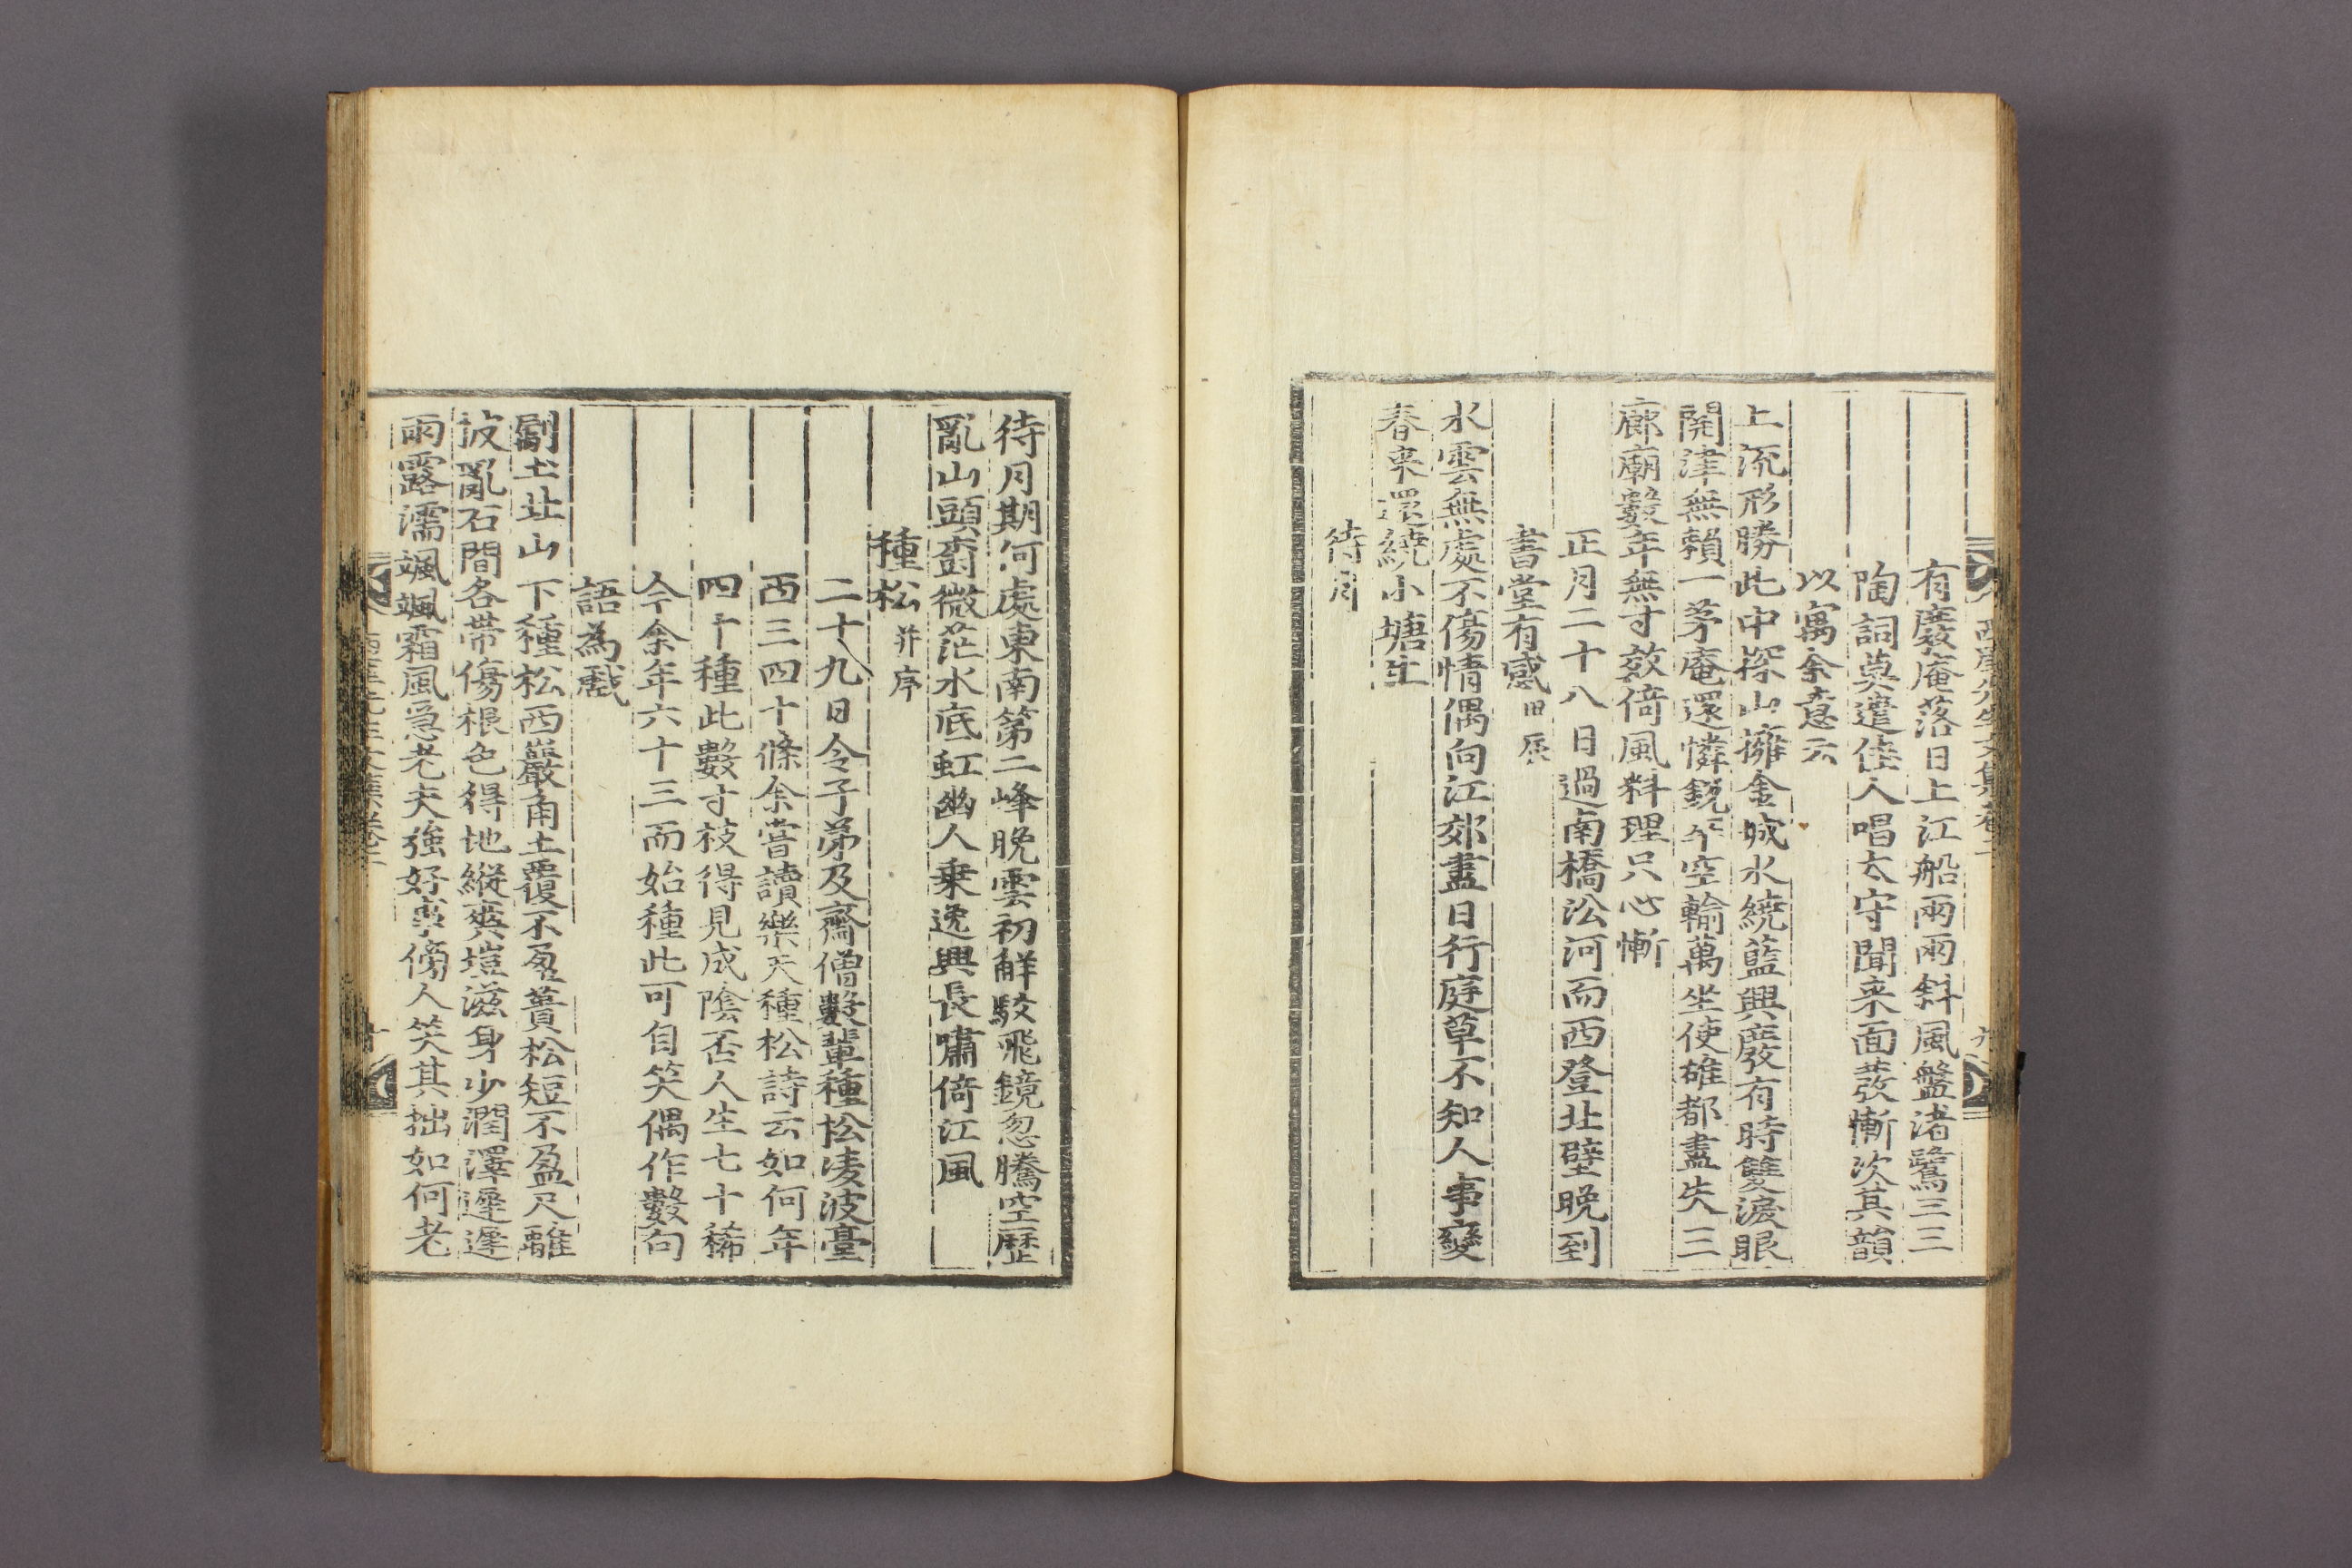 西厓先生文集卷二
九
有廢庵落日上江船兩兩斜風盤渚鷺三三
陶詞奠遣佳人唱太守聞来面發慚次其韻
以寓余意云
上流形勝此中探山擁金城水繞藍興廢有時雙淚眼
開津無賴一茅庵還憐銳卒空輸萬坐使雄都盡失三
廊廟數年無寸效倚風料理只心慚
正月二十八日過南橋沿河而西登北壁晚到
書堂有感甲辰
水雲無處不傷情偶向江郊盡日行庭草不知人事變
春来還繞小塘生
待月
待月期何處東南第二峰晚雲初解駁飛鏡忽騰空歷
亂山頭樹微茫水底虹幽人乘逸興長嘯倚江風
種松并序
二十九日令子弟及齋僧數輩種松凌波臺
西三四十條余嘗讀樂天種松詩云如何年
四十種此數寸枝得見成陰否人生七十稀
今余年六十三而始種此可自笑偶作數句
語為戲
劚土北山下種松西巖角土覆不盈蕢松短不盈尺離
披亂石間各帶傷根色得地縱爽塏滋身少潤澤遲遲
雨露濡颯颯霜風急老夫強好事傍人笑其拙如何老
西厓先生文集卷二
十